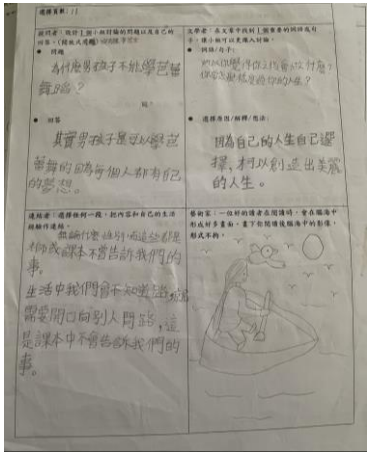 選擇頁數：13
提問者：設計1個小組討論的問題以及自己的
回答。
● 問題
為什麼男孩子不能學芭蕾
舞蹈？
● 回答
其實男孩子是可以學芭
蕾舞的因為每個人都有自己
的夢想。
文學者：在文章中找到1個重要的詞語或句
子，讓小組可以更深入討論。
● 詞語/句子：
你的人生？
● 選擇原因/解釋/想法：
因為自己的人生自己選
擇，才可以創造出美麗
的人生。
連結者：選擇任何一段，把內容和自己的生活
經驗作連結。
無論什麼性別
課本不會告訴我們的
事。
生活中我們會不知道路，
需要開口向別人問路，這
是課本中不會告訴我們的
事。
藝術家：一位好的讀者在閱讀時，會在腦海中
形成許多畫面，畫下你閱讀後腦海中的影像，
形式不拘。